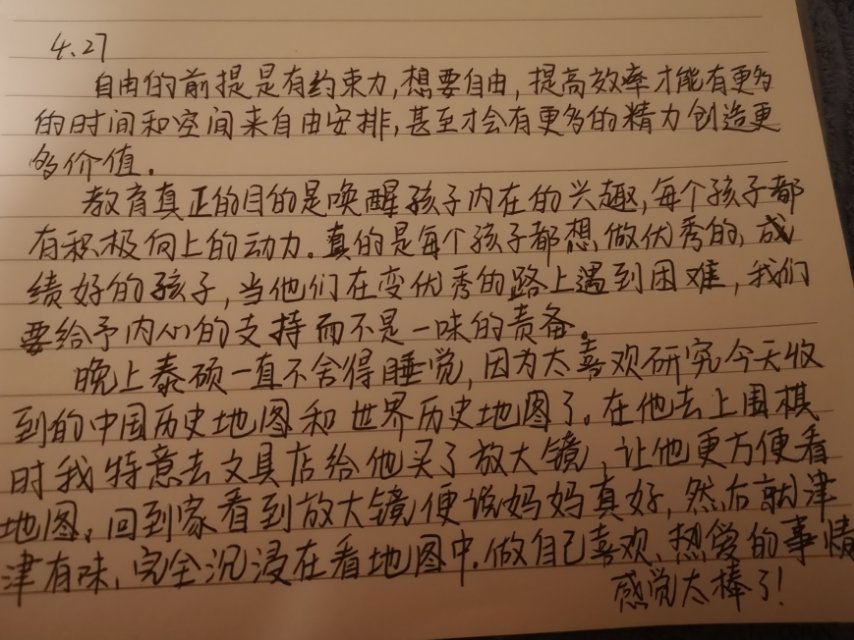 4.27
自由的前提是有约束力,想要自由,提高效率才能有更多
的时间和空间来自由安排,甚至才会有更多的精力创造更
多价值.
教育真正的目的是唤醒孩子内在的兴趣,每个孩子都
有积极向上的动力.真的是每个孩子都想做优秀的,成
绩好的孩子,当他们在变优秀的路上遇到困难,我们
要给予内心的支持而不是一味的责备。
晚上泰硕一直不舍得睡觉,因为太喜欢研究今天收
到的中国历史地图和世界历史地图了。在他去上围棋
时我特意去文具店给他买了放大镜,让他更方便看
地图、回到家看到放大镜便说妈妈真好,然后就津
津有味、完全沉浸在看地图中.做自己喜欢、热爱的事情
感觉太棒了!